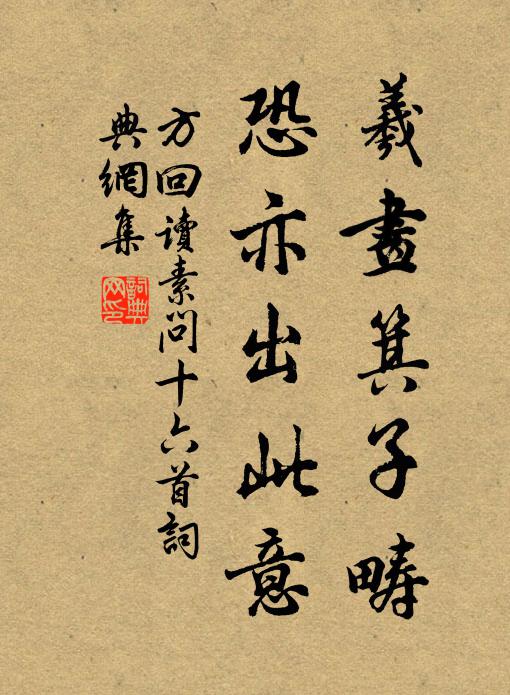 羲畫箕子疇
恐亦出此意
方回讀素問十六首詞
典網集
詞典
网印